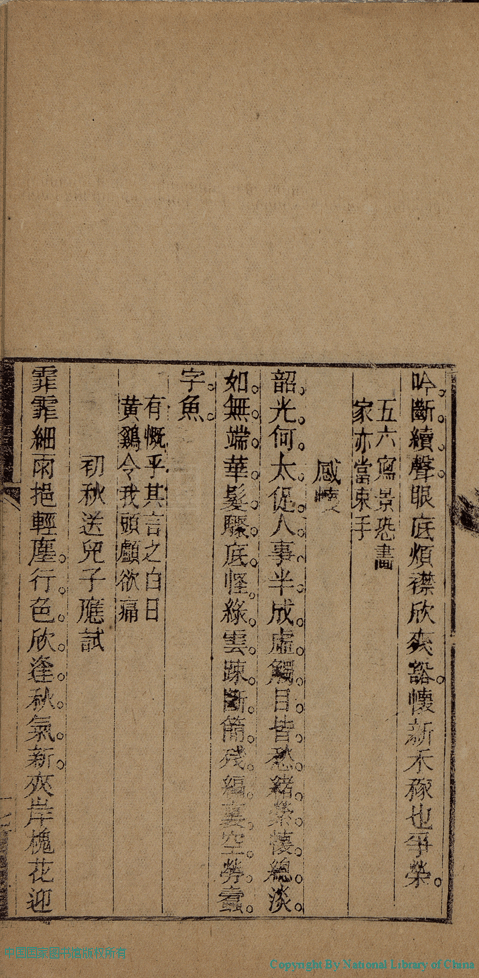 吟斷續聲眼底煩襟欣爽豁懷新禾稼也爭榮
五六寫景恐畫
家亦當束手
感懷
韶光何太促人事半成虛觸目皆愁緒縈懷總淡
如無端華髮驟底怪綠雲疎斷簡殘編裏空勞蠹
字魚
有慨乎其言之白日
黃鷄令我頭顱欲痛
初秋送兒子應試
霏霏細雨挹輕塵行色欣逢秋氣新夾岸槐花迎
Copyright By National Library of China